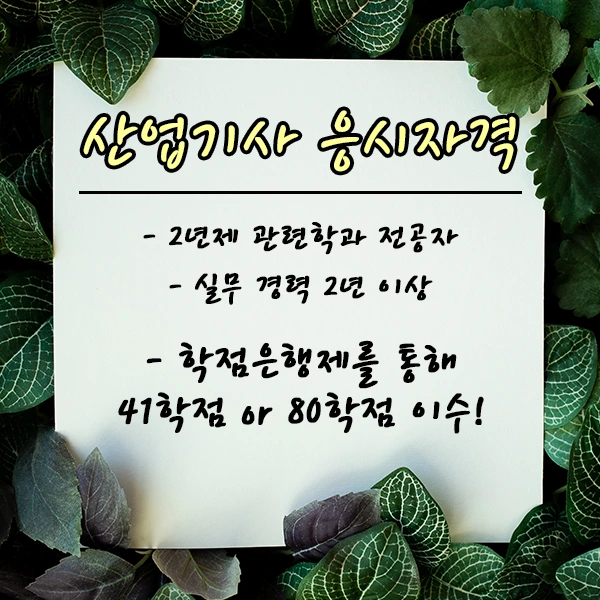 산업기사 응시자격
- 2년제 관련학과 전공자
- 실무 경력 2년 이상
- 학점은행제를 통해
41학점 or 80학점 이수!